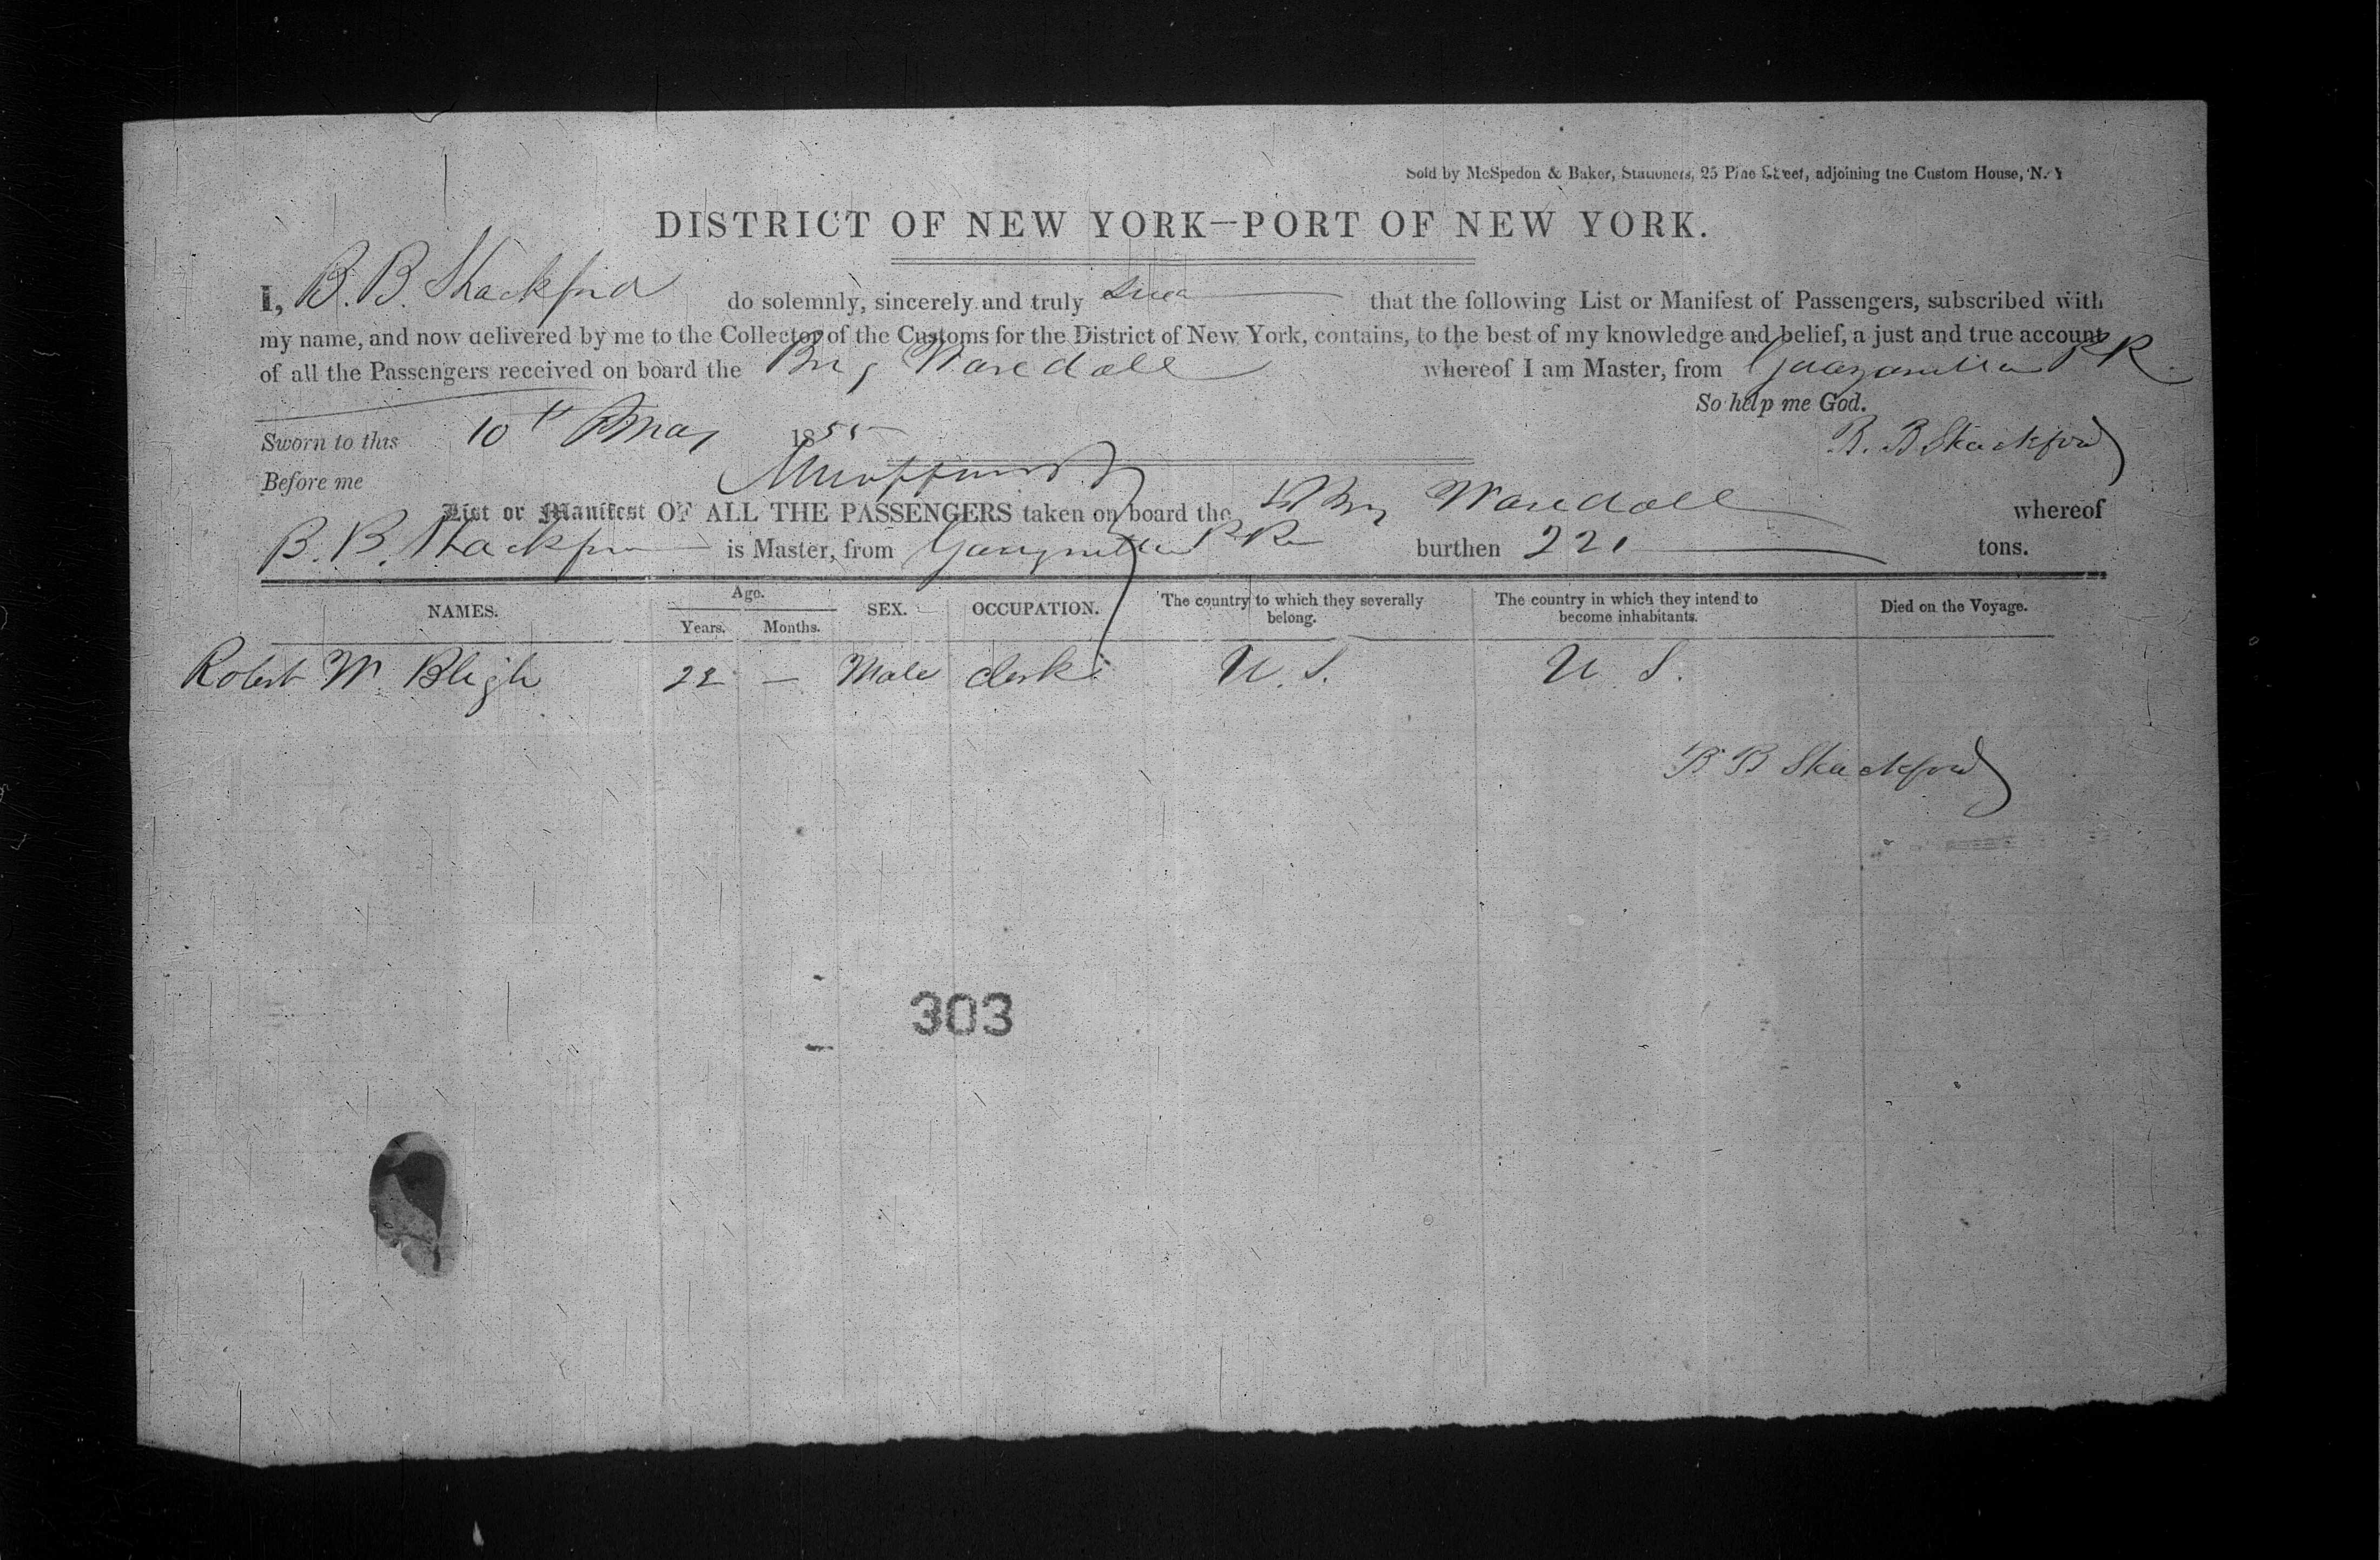 Sold by McSpedon & Baker, Stationers, 25 Pine Street, adjoining the Custom House, N. Y
DISTRICT OF NEW YORK—PORT OF NEW YORK.
I, B. B. Shackford do solemnly, sincerely and truly that the following List or Manifest of Passengers, subscribed with
my name, and now delivered by me to the Collector of the Customs for the District of New York, contains, to the best of my knowledge and belief, a just and true account
of all the Passengers received on board the Brig Waredall whereof I am Master, from P R
So help me God.
Sworn to this 10th May 1855 B. B Shackford
Before me
List or Manifest OF ALL THE PASSENGERS taken on board the Brig Waredall whereof
B. B. Shackford is Master, from P R burthen 221 tons.
NAMES. Age. Years. Months. SEX. OCCUPATION. The country to which they severally belong. The country in which they intend to become inhabitants. Died on the Voyage.
Robert W Bligh 22 — Male clerk U. S. U S.
B B Shackford
303